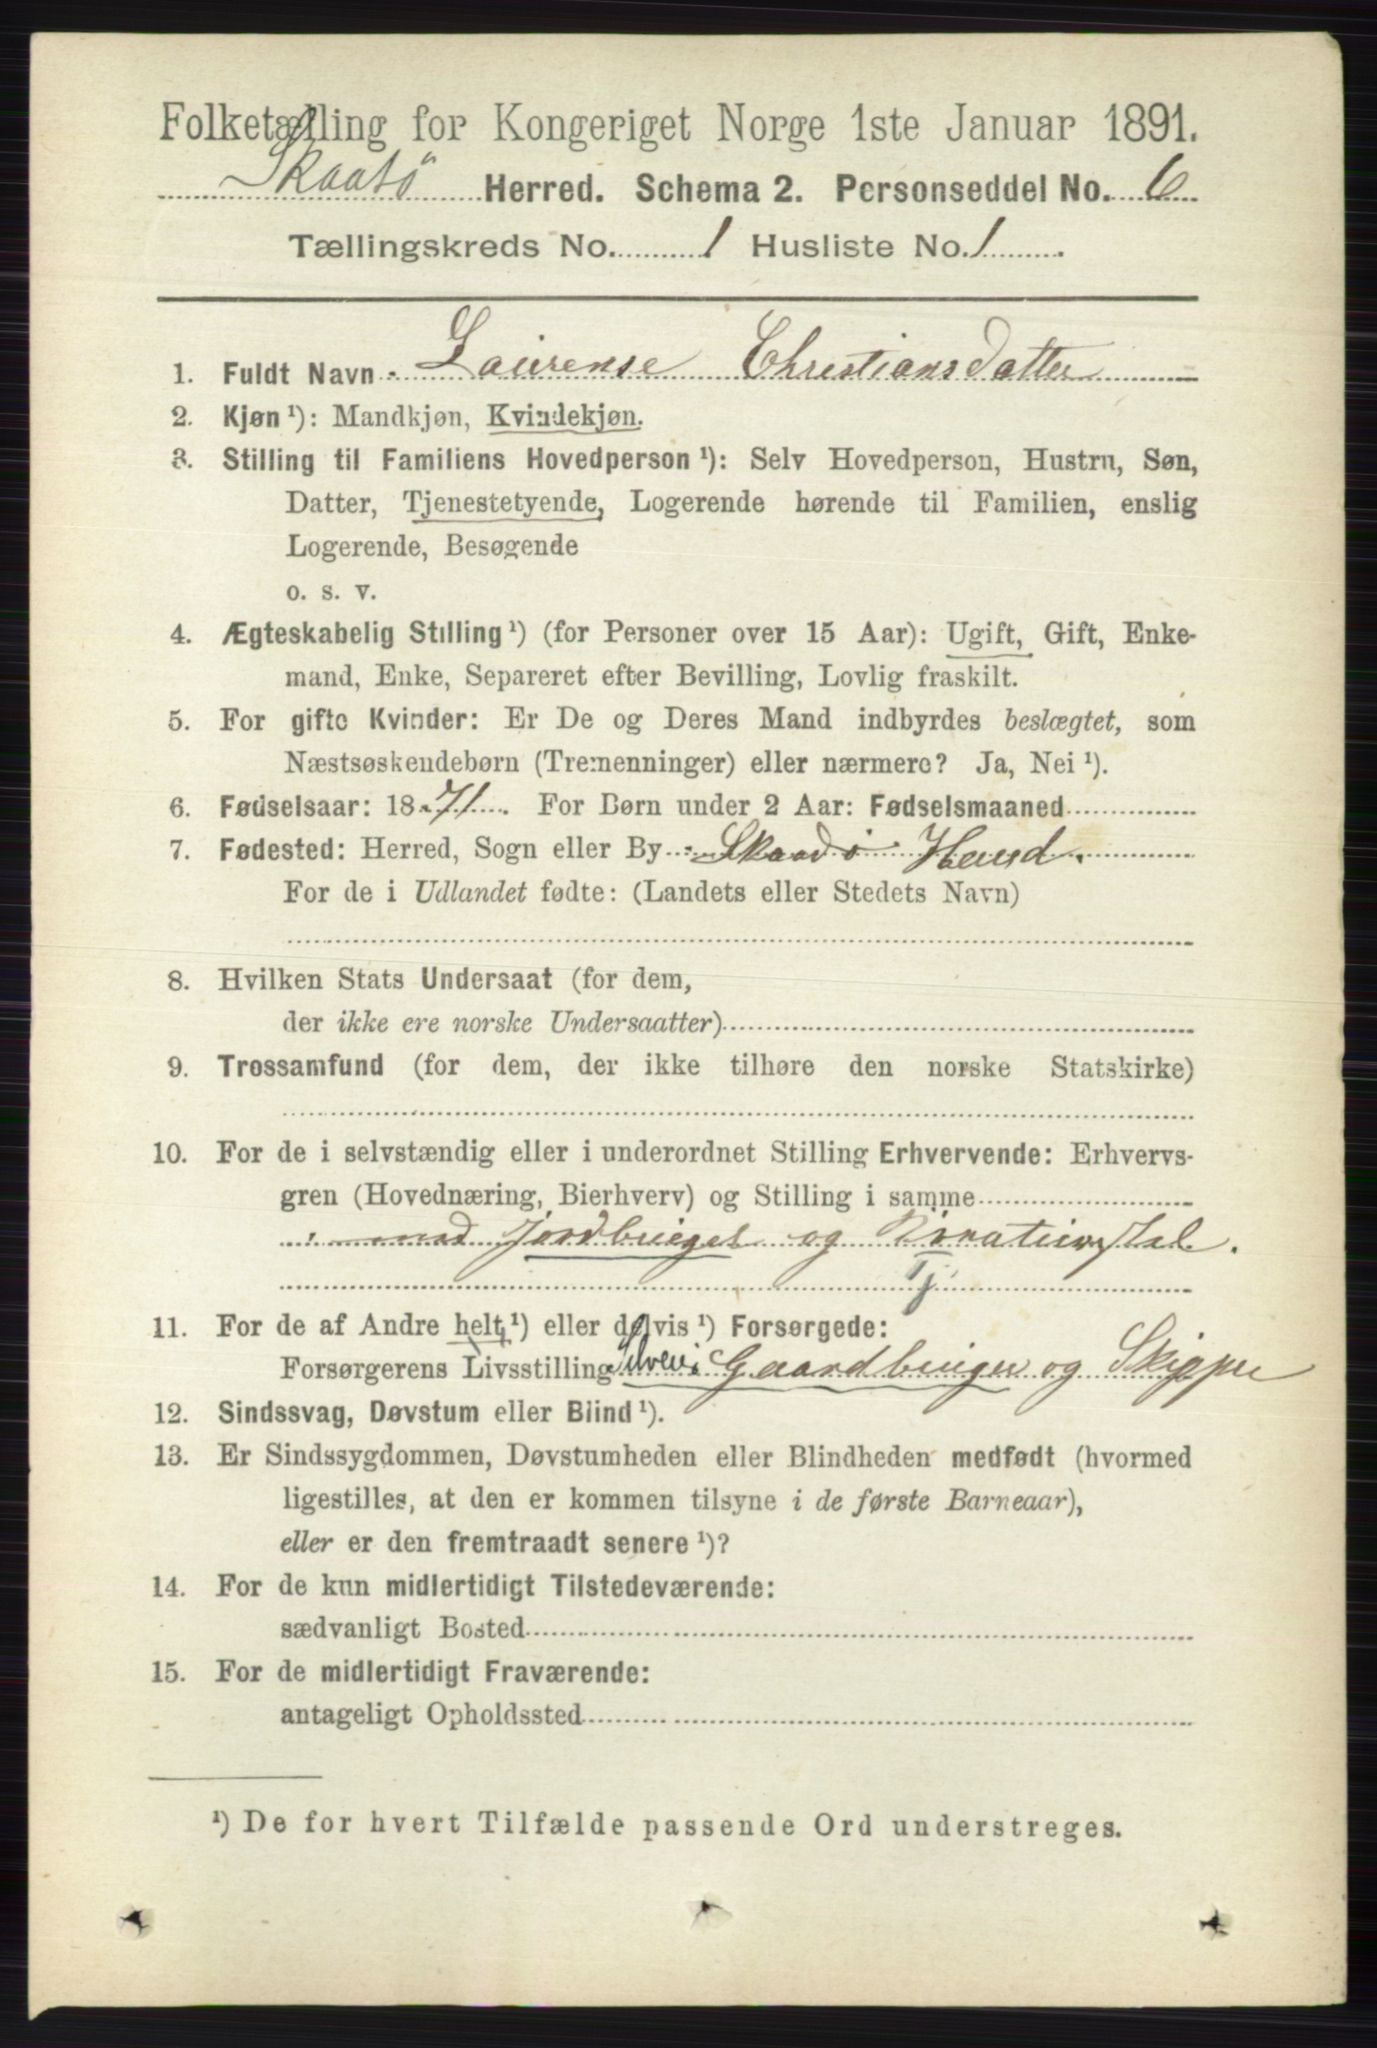 Folketælling for Kongeriget Norge 1ste Januar 1891.
Skaatö Herred. Schema 2. Personseddel No. 6
Tællingskreds No. 1 Husliste No. 1
1. Fuldt Navn Laurense Christiansdatter
2. Kjøn ¹): Mandkjøn, Kvindekjøn.
3. Stilling til Familiens Hovedperson ¹): Selv Hovedperson, Hustru, Søn,
Datter, Tjenestetyende, Logerende hørende til Familien, enslig
Logerende, Besøgende
o. s. v.
4. Ægteskabelig Stilling ¹) (for Personer over 15 Aar): Ugift, Gift, Enke-
mand, Enke, Separeret efter Bevilling, Lovlig fraskilt.
5. For gifte Kvinder: Er De og Deres Mand indbyrdes beslægtet, som
Næstsøskendebørn (Tremenninger) eller nærmere? Ja, Nei ¹).
6. Fødselsaar: 1871. For Børn under 2 Aar: Fødselsmaaned
7. Fødested: Herred, Sogn eller By Skaadø
For de i Udlandet fødte: (Landets eller Stedets Navn)
8. Hvilken Stats Undersaat (for dem,
der ikke ere norske Undersaatter)
9. Trossamfund (for dem, der ikke tilhøre den norske Statskirke)
10. For de i selvstændig eller i underordnet Stilling Erhvervende: Erhvervs-
gren (Hovednæring, Bierhverv) og Stilling i samme
med Jordbruget og Kreaturstel.
Tj
11. For de af Andre helt ¹) eller delvis ¹) Forsørgede:
Forsørgerens Livsstilling Gaardbruger og Skipper
12. Sindssvag, Døvstum eller Blind ¹).
13. Er Sindssygdommen, Døvstumheden eller Blindheden medfødt (hvormed
ligestilles, at den er kommen tilsyne i de første Barneaar),
eller er den fremtraadt senere ¹)?
14. For de kun midlertidigt Tilstedeværende:
sædvanligt Bosted
15. For de midlertidigt Fraværende:
antageligt Opholdssted
¹) De for hvert Tilfælde passende Ord understreges.